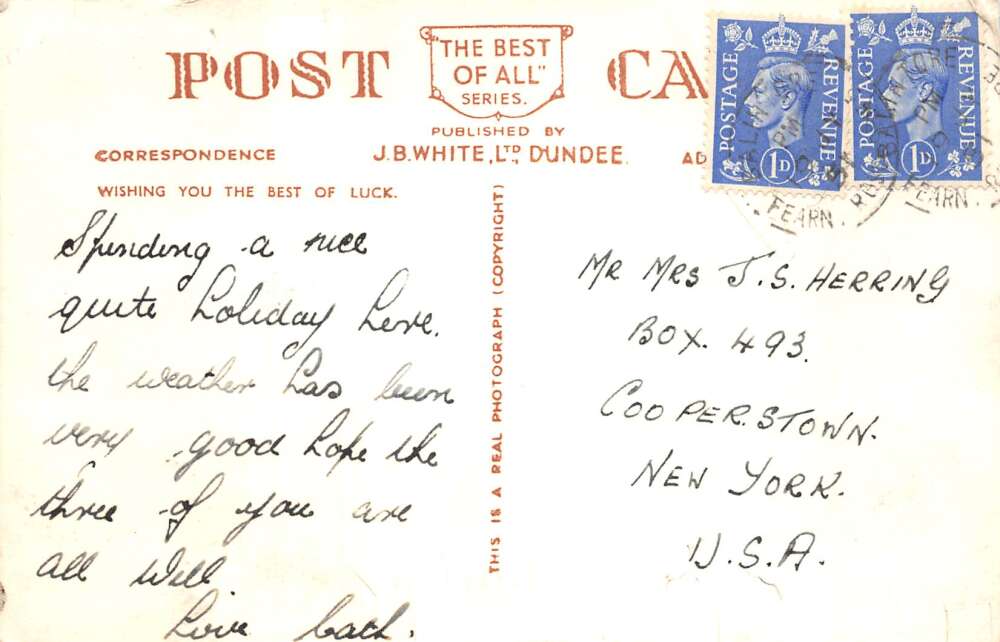 POST CA
"THE BEST
OF ALL"
SERIES.
PUBLISHED BY
J.B. WHITE, LTD., DUNDEE.
CORRESPONDENCE
AD
WISHING YOU THE BEST OF LUCK.
Spending a nice
quite holiday here.
the weather has been
very good hope the
three of you are
all well.
Love
THIS IS A REAL PHOTOGRAPH (COPYRIGHT)
POSTAGE REVENUE
1D
POSTAGE REVENUE
1D
BALINTORE
PM
FEARN.
BALINTORE
PM
FEARN.
MR MRS J.S. HERRING
BOX. 493.
COOPERSTOWN.
NEW YORK.
U.S.A.